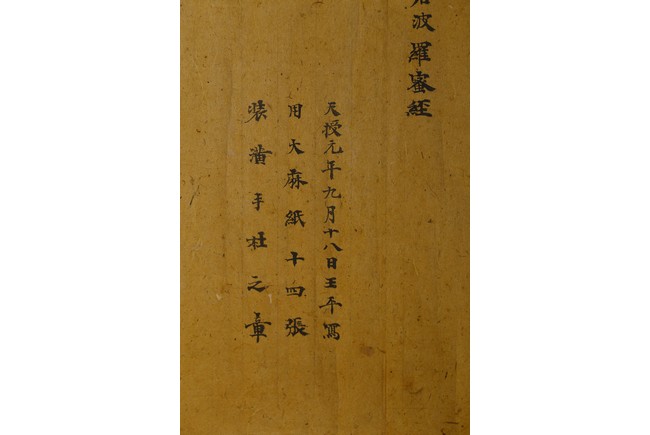 若波羅蜜経
天授元年九月十八日王平寫
用大麻紙十四張
裝潢手杜之章